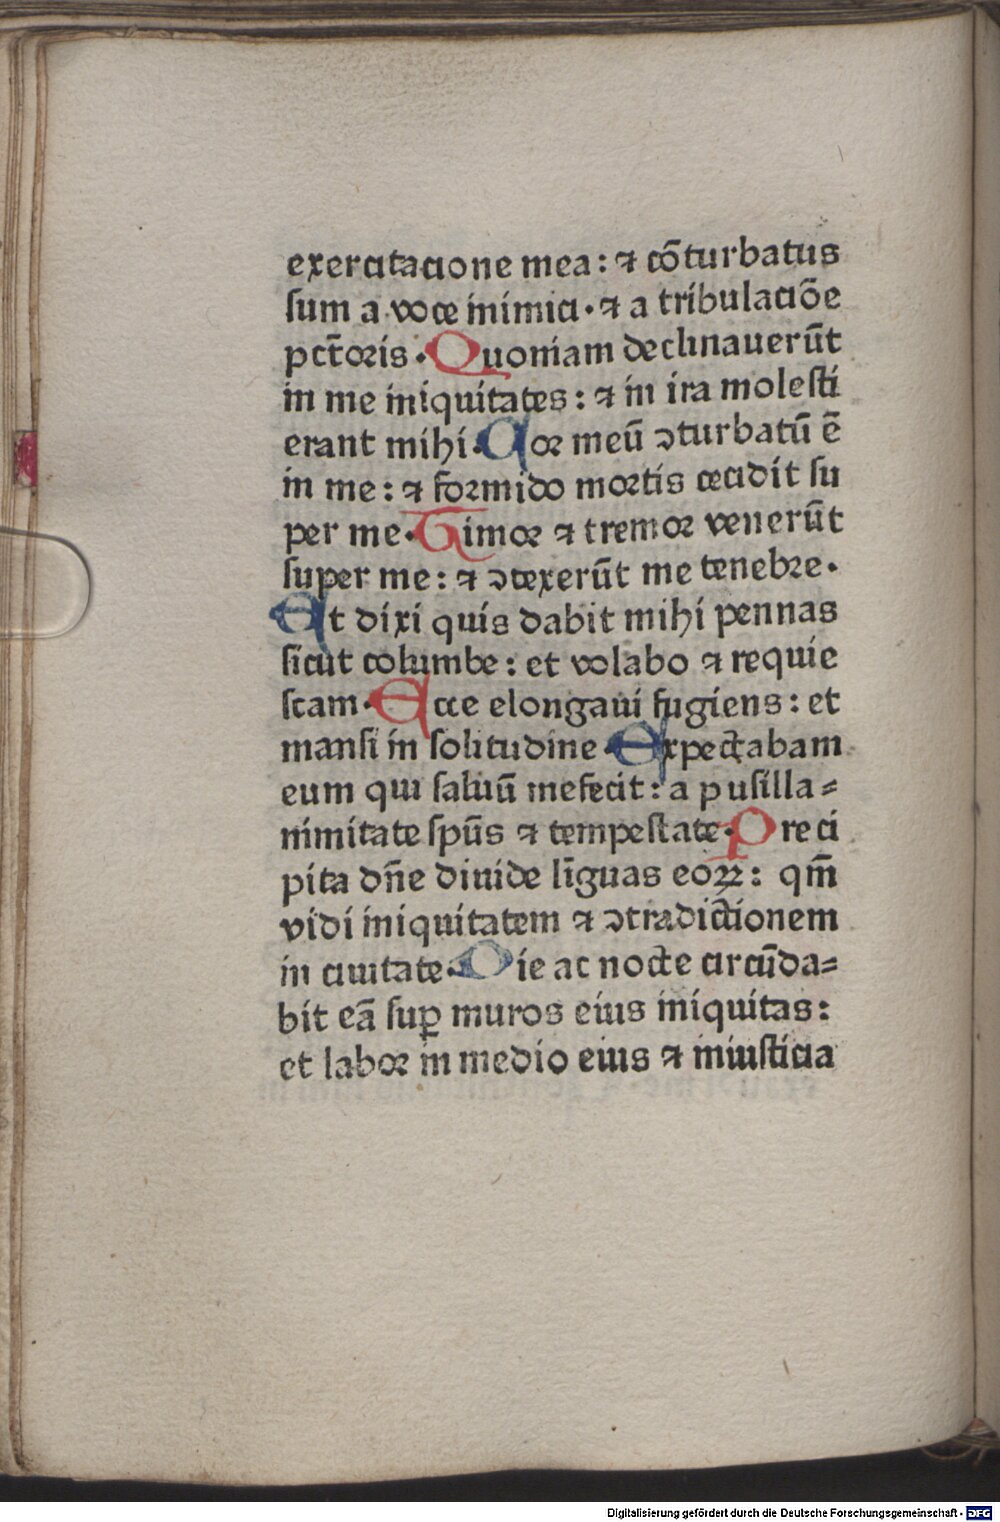 exercitacione mea: ⁊ cōturbatus
ſum a voce inimici· ⁊ a tribulaciōe
pct̄oꝛis· Quoniam declinauerūt
in me iniquitates: ⁊ in ira moleſti
erant mihi· Coꝛ meū ↄturbatū ē
in me: ⁊ foꝛmido moꝛtis cecidit ſu
per me· Timoꝛ ⁊ tremoꝛ venerūt
ſuper me: ⁊ ↄtexerūt me tenebꝛe·
Et dixi quis dabit mihi pennas
ſicut columbe: et volabo ⁊ requie
ſcam· Ecce elongaui fugiens: et
manſi in ſolitudine· Expectabam
eum qui ſaluū me fecit: a puſilla⸗
nimitate ſpūs ⁊ tempeſtate· Preci
pita dn̄e diuide līguas eoꝝ: qm̄
vidi iniquitatem ⁊ ↄtradictionem
in ciuitate· Die ac nocte circūda⸗
bit eā ſuꝑ muros eius iniquitas:
et laboꝛ in medio eius ⁊ iniuſticia
Digitalisierung gefördert durch die Deutsche Forschungsgemeinschaft - DFG